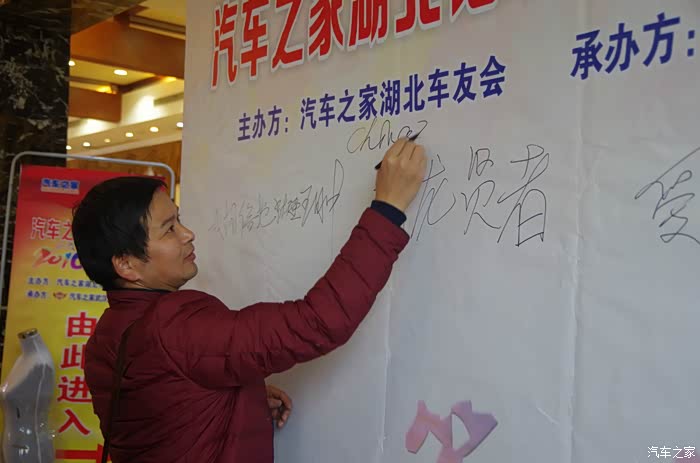 汽车之家湖北
主办方：汽车之家湖北车友会
承办方：
China
龙贤者
汽车之家
汽车之
201
主办方 汽车之家湖
承办方 汽车之家武汉
由
此
进
入
汽车之家